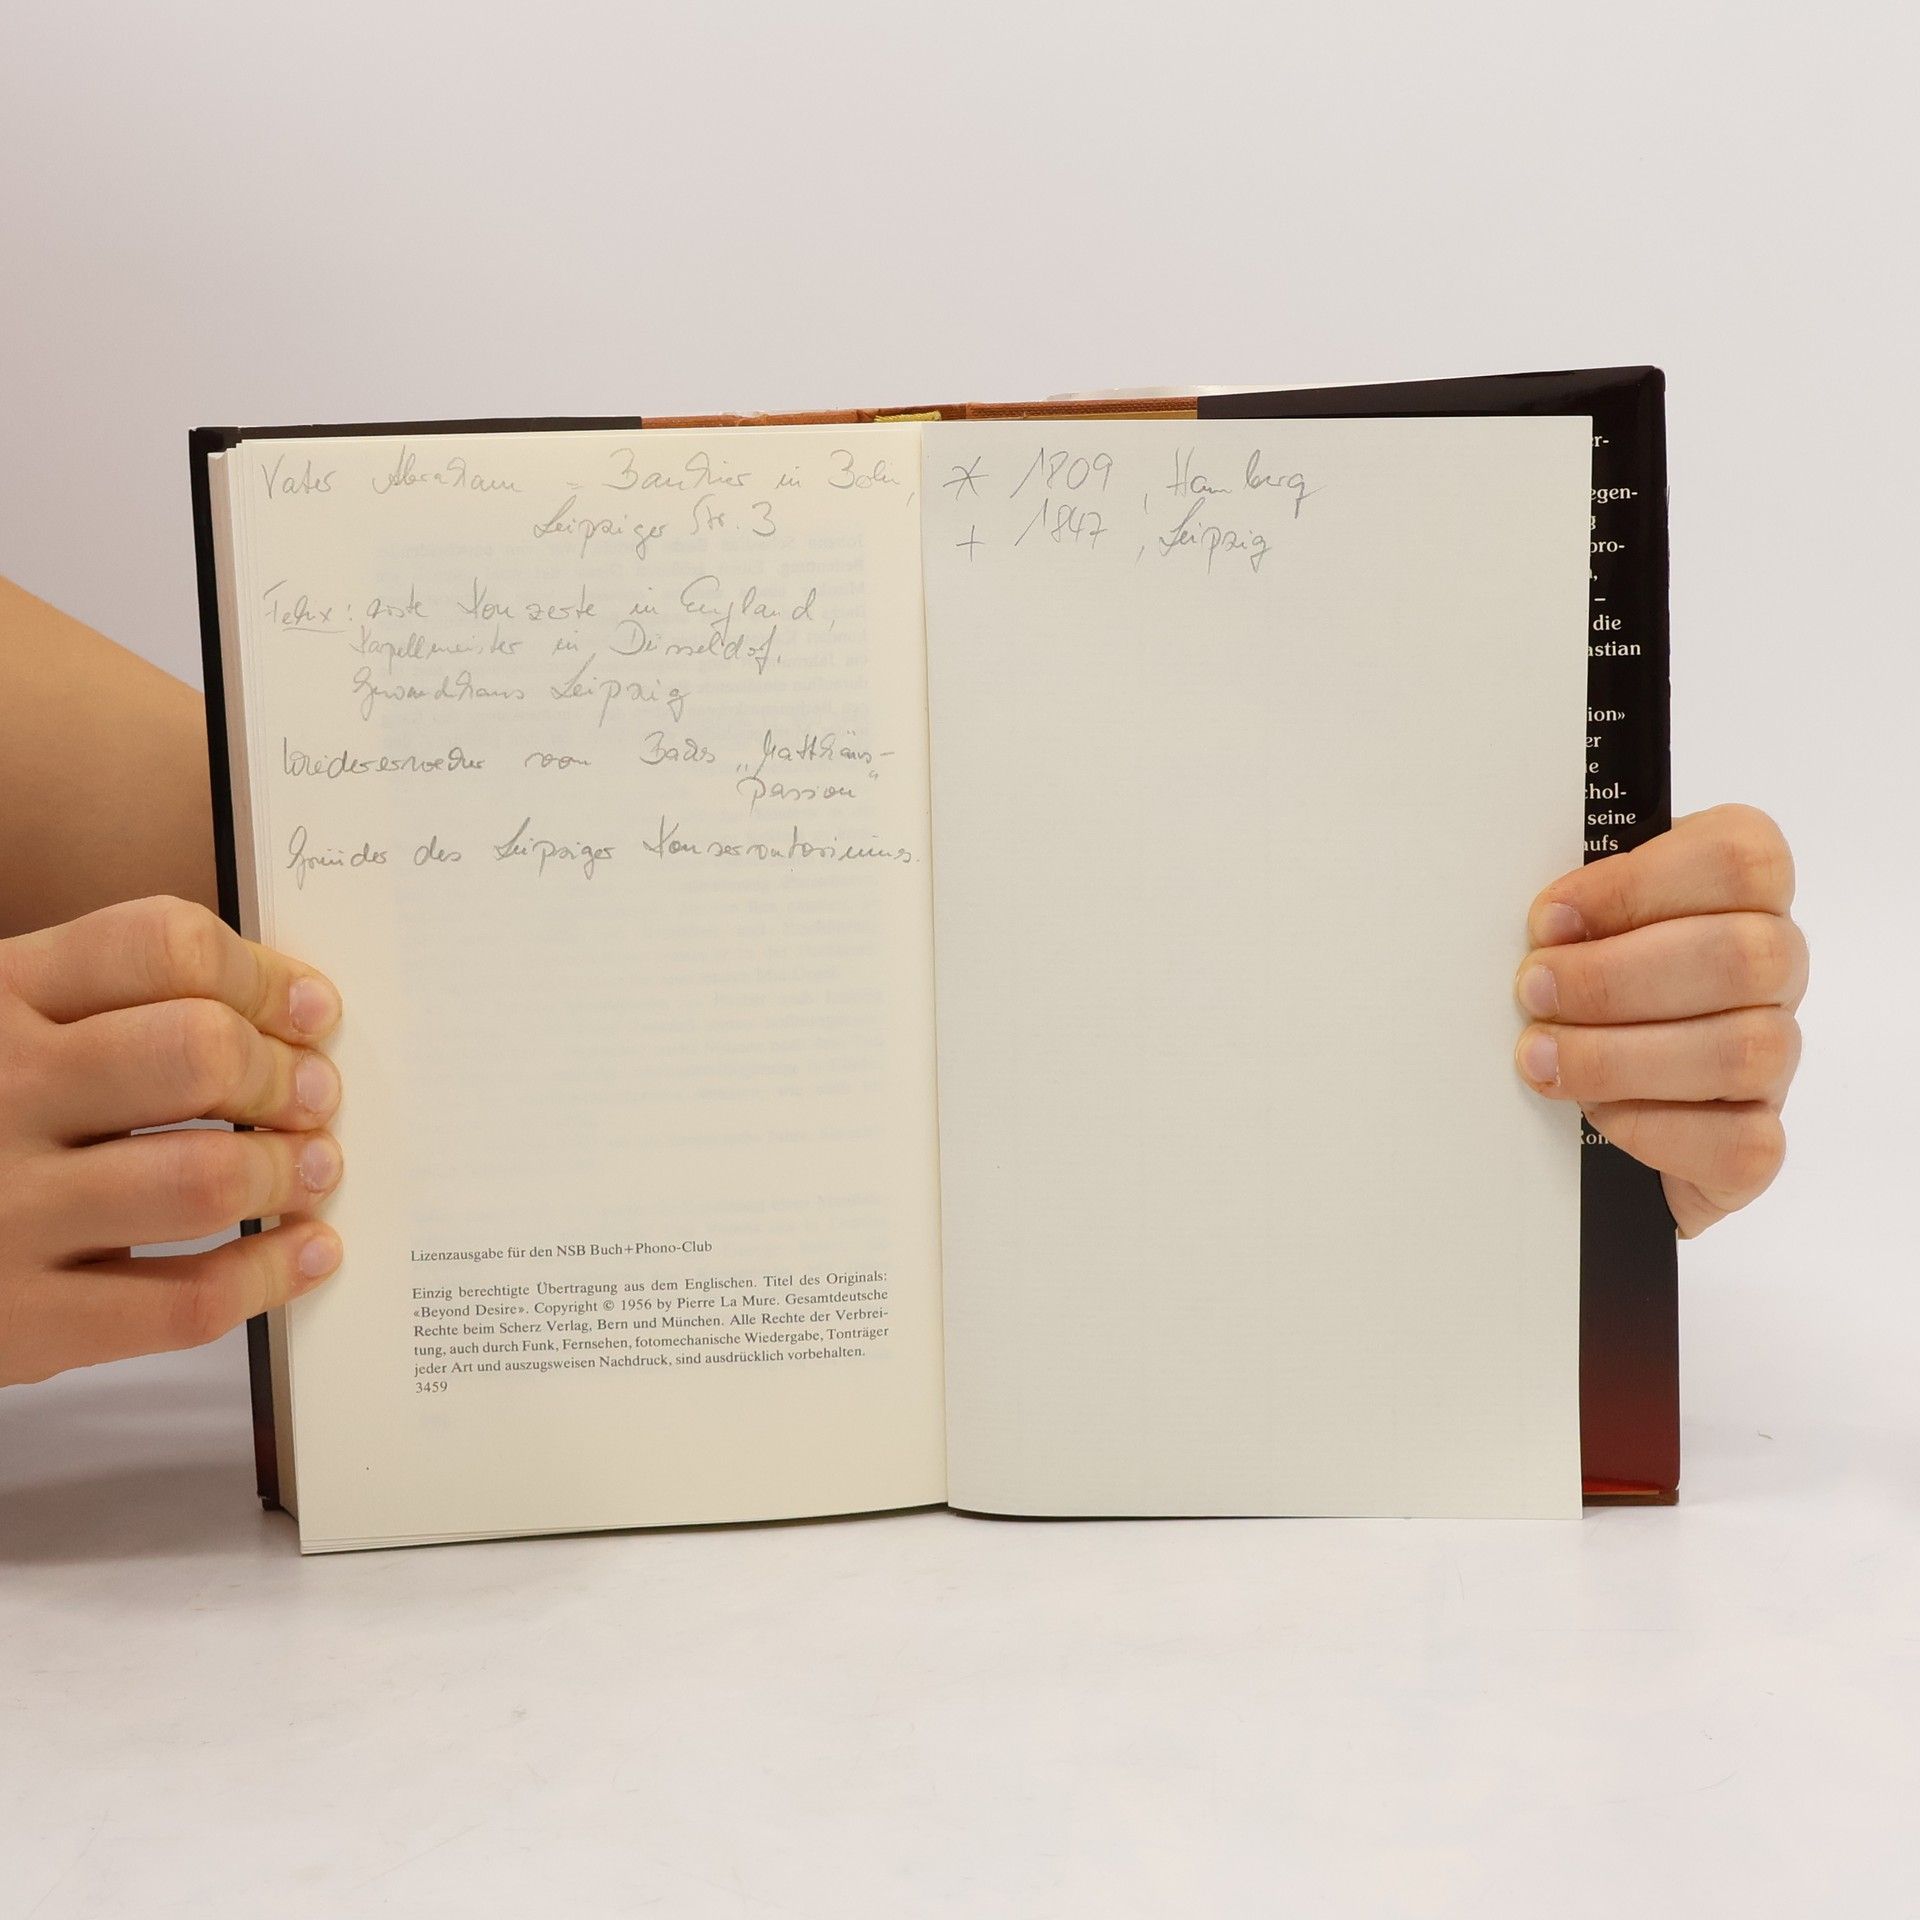 Vater Abraham = Bankier in Berlin,
Leipziger Str. 3
Felix: erste Konzerte in England,
Kapellmeister in Düsseldorf,
Gewandhaus Leipzig
Wiedererwecker von Bachs „Matthäus-
Passion“
Gründer des Leipziger Konservatoriums.
Lizenzausgabe für den NSB Buch+Phono-Club
Einzig berechtigte Übertragung aus dem Englischen. Titel des Originals:
«Beyond Desire». Copyright © 1956 by Pierre La Mure. Gesamtdeutsche
Rechte beim Scherz Verlag, Bern und München. Alle Rechte der Verbrei-
tung, auch durch Funk, Fernsehen, fotomechanische Wiedergabe, Tonträger
jeder Art und auszugsweisen Nachdruck, sind ausdrücklich vorbehalten.
3459
* 1809, Hamburg
+ 1847, Leipzig
die
seine